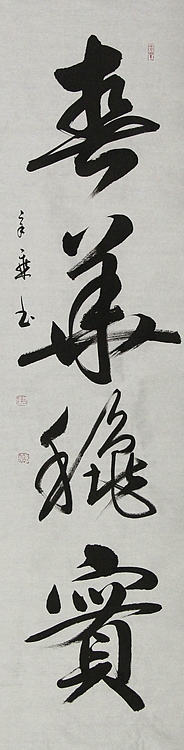 春華穐實